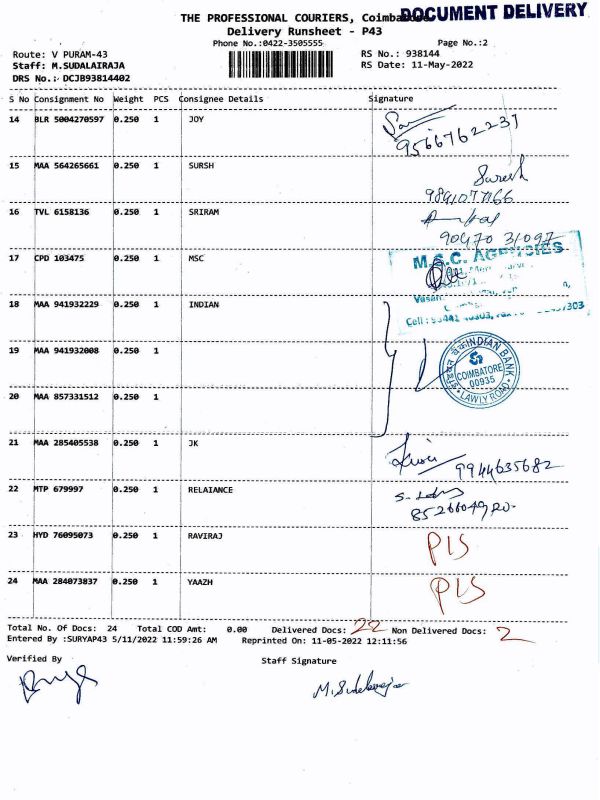 THE PROFESSIONAL COURIERS, Coimbatore
DOCUMENT DELIVERY
Delivery Runsheet - P43
Phone No.:0422-3505555
Page No.:2
Route: V PURAM-43
RS No.: 938144
Staff: M.SUDALAIRAJA
RS Date: 11-May-2022
DRS No.: DCJB93814402
S No Consignment No Weight PCS Consignee Details Signature
14 BLR 5004270597 0.250 1 JOY
9566762237
15 MAA 564265661 0.250 1 SURSH
Suresh
16 TVL 6158136 0.250 1 SRIRAM
90470 31097
17 CPD 103475 0.250 1 MSC
M.S.C. AGENCIES
18 MAA 941932229 0.250 1 INDIAN
19 MAA 941932008 0.250 1
INDIAN BANK
COIMBATORE
00935
LAWLY ROAD
20 MAA 857331512 0.250 1
21 MAA 285405538 0.250 1 JK
9944635682
22 MTP 679997 0.250 1 RELAIANCE
23 HYD 76095073 0.250 1 RAVIRAJ
PIS
24 MAA 284073837 0.250 1 YAAZH
PIS
Total No. Of Docs: 24 Total COD Amt: 0.00 Delivered Docs: 22 Non Delivered Docs: 2
Entered By :SURYAP43 5/11/2022 11:59:26 AM Reprinted On: 11-05-2022 12:11:56
Verified By
Staff Signature